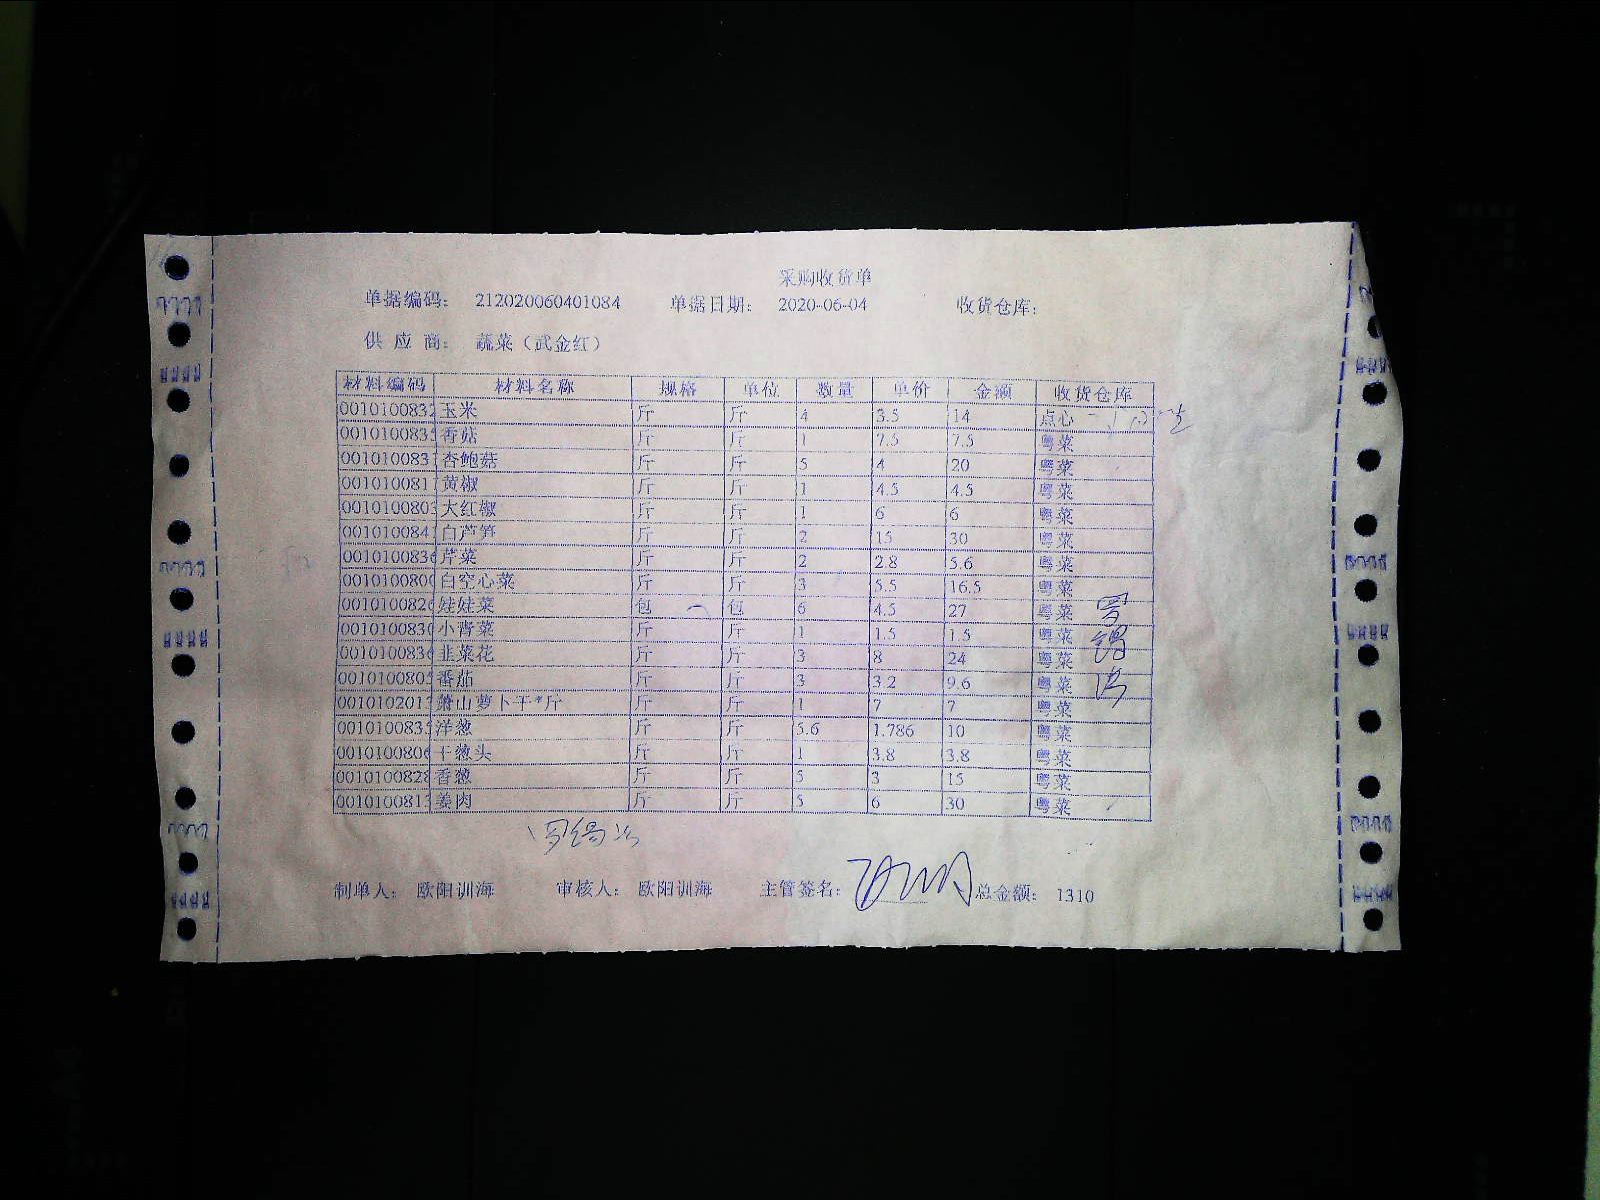 采购收货单
单据编码: 212020060401084 单据日期: 2020-06-04 收货仓库:
供应商: 蔬菜（武金红）
材料编码 材料名称 规格 单位 数量 单价 金额 收货仓库
0010100832 玉米 斤 斤 4 3.5 14 点心
0010100835 香菇 斤 斤 1 7.5 7.5 粤菜
001010083 杏鲍菇 斤 斤 5 4 20 粤菜
001010081 黄椒 斤 斤 1 4.5 4.5 粤菜
001010080 大红椒 斤 斤 1 6 6 粤菜
001010084 白芦笋 斤 斤 2 15 30 粤菜
001010083 芹菜 斤 斤 2 2.8 5.6 粤菜
001010080 白空心菜 斤 斤 3 5.5 16.5 粤菜
001010082 娃娃菜 包 包 6 4.5 27 粤菜
001010083 小青菜 斤 斤 1 1.5 1.5 粤菜
001010083 韭菜花 斤 斤 3 8 24 粤菜
001010080 番茄 斤 斤 3 3.2 9.6 粤菜
001010201 萧山萝卜干*斤 斤 斤 1 7 7 粤菜
001010083 洋葱 斤 斤 5.6 1.786 10 粤菜
001010080 干葱头 斤 斤 1 3.8 3.8 粤菜
001010082 香葱 斤 斤 5 3 15 粤菜
001010081 姜肉 斤 斤 5 6 30 粤菜
制单人: 欧阳训海 审核人: 欧阳训海 主管签名: 总金额: 1310